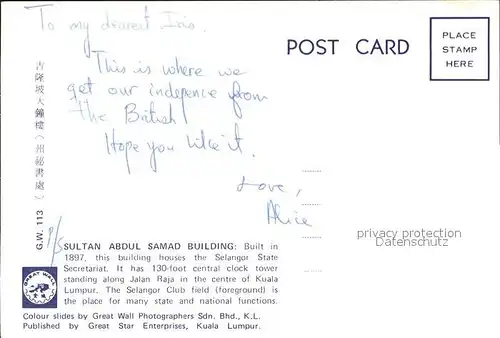 To my dearest Iris.
This is where we
get our indepence from
the British!
Hope you like it.
Love,
Alice
POST CARD
PLACE
STAMP
HERE
吉隆坡大鐘樓（州秘書處）
G.W. 113
P/S
SULTAN ABDUL SAMAD BUILDING: Built in
1897, this building houses the Selangor State
Secretariat. It has 130-foot central clock tower
standing along Jalan Raja in the centre of Kuala
Lumpur. The Selangor Club field (foreground) is
the place for many state and national functions.
GREAT WALL
Colour slides by Great Wall Photographers Sdn. Bhd., K.L.
Published by Great Star Enterprises, Kuala Lumpur.
privacy protection
Datenschutz